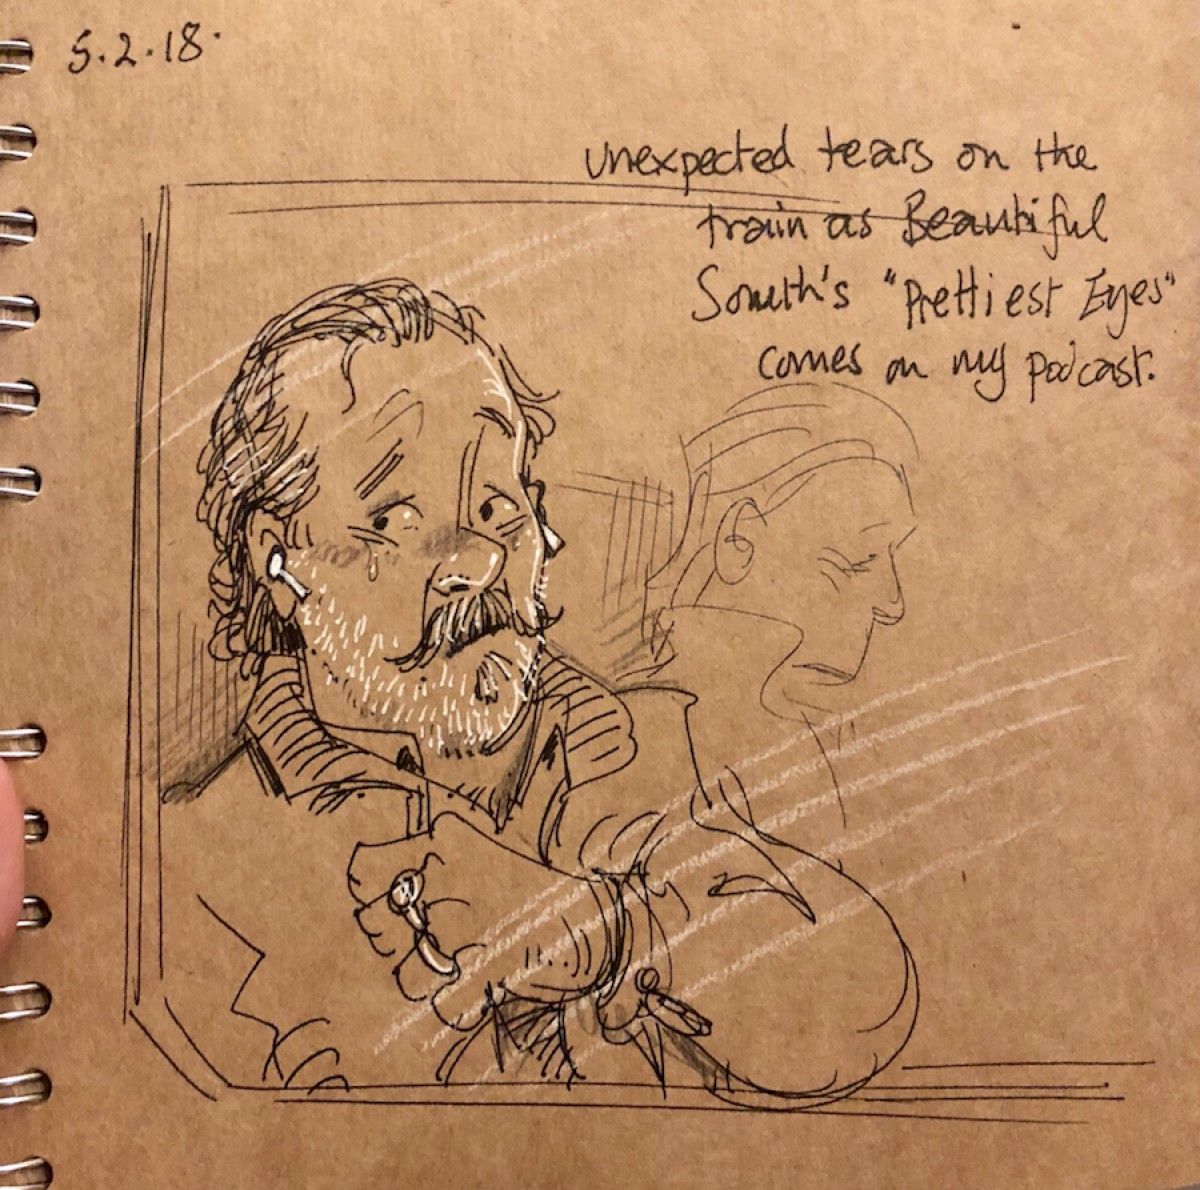 5.2.18.
unexpected tears on the
train as Beautiful
South's "Prettiest Eyes"
comes on my podcast.